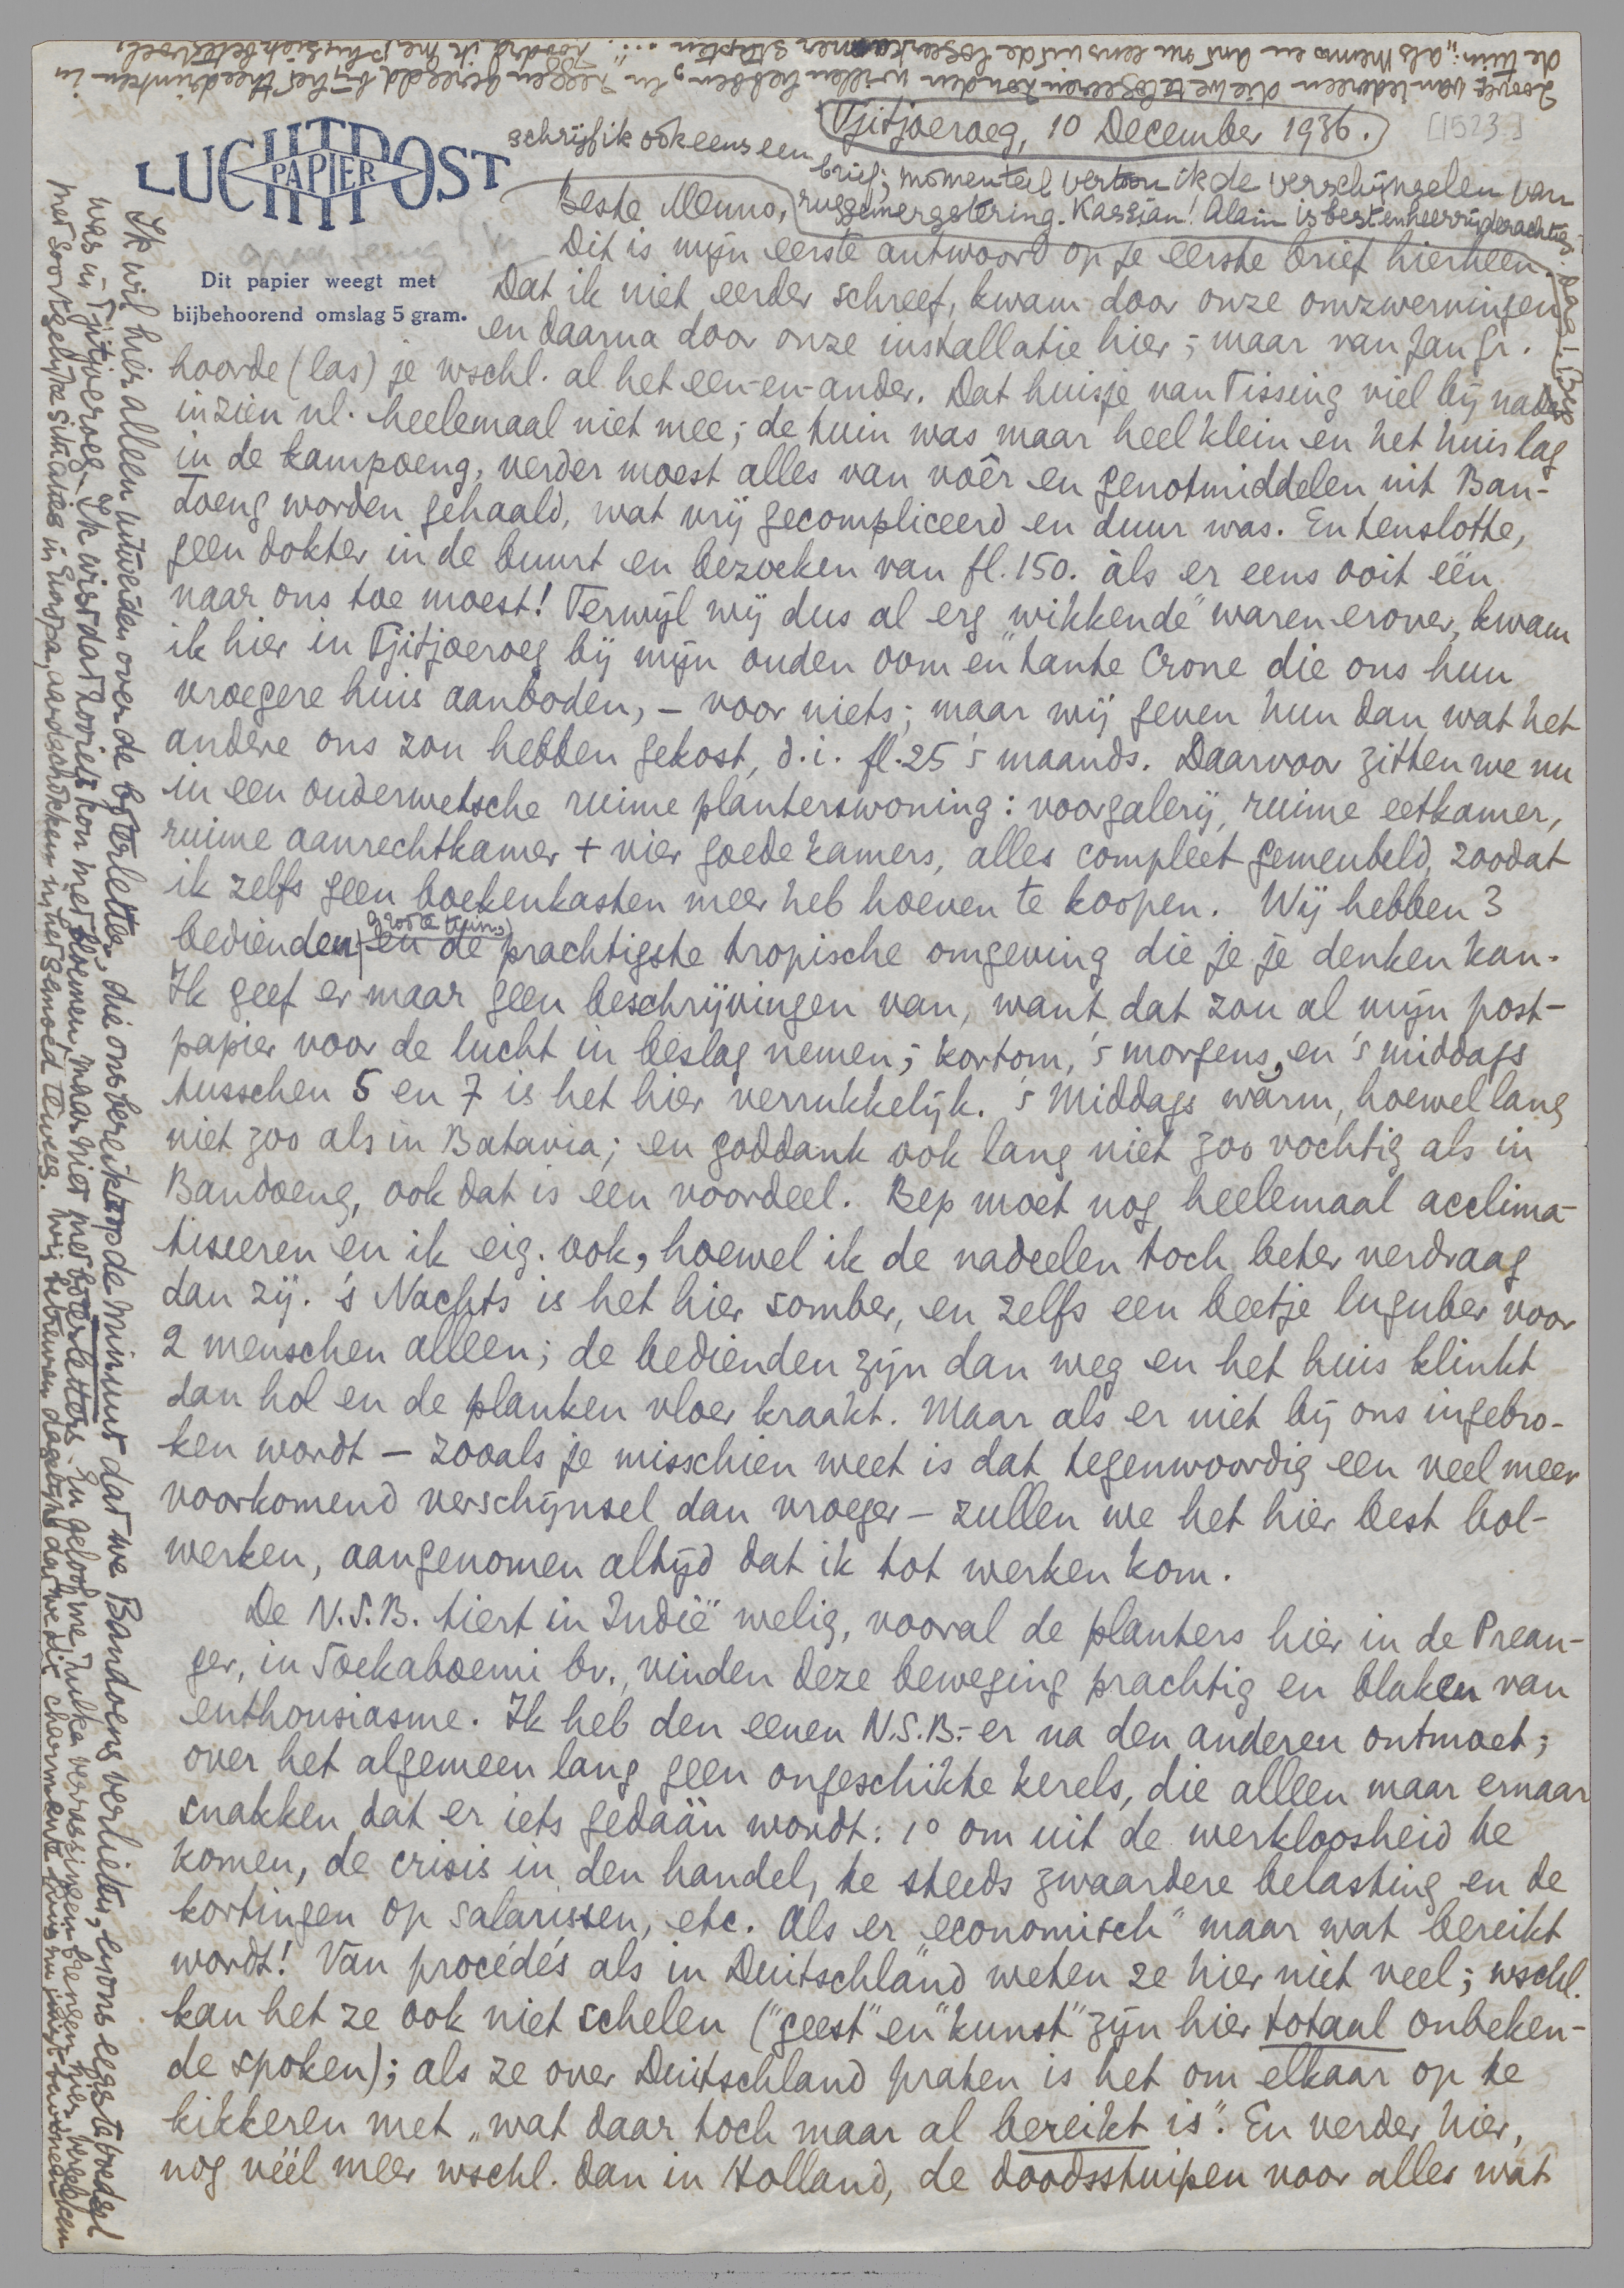 Tjitjoeroeg, 10 December 1936.
[1523]
LUCHTPOST
PAPIER
Dit papier weegt met
bijbehoorend omslag 5 gram.
Beste Menno,
Dit is mijn eerste antwoord op je eerste brief hierheen.
Dat ik niet eerder schreef, kwam door onze omzwervingen
en daarna door onze installatie hier; maar van Jan Gr.
hoorde (las) je wschl. al het een-en-ander. Dat huisje van Tissing viel bij nader
inzien nl. heelemaal niet mee; de tuin was maar heel klein en het huis lag
in de kampoeng, verder moest alles van voêr en genotmiddelen uit Ban-
doeng worden gehaald, wat vrij gecompliceerd en duur was. En tenslotte,
geen dokter in de buurt en bezoeken van fl. 150. àls er eens ooit één
naar ons toe moest! Terwijl wij dus al erg „wikkende" waren erover, kwam
ik hier in Tjitjoeroeg bij mijn ouden oom en tante Crone die ons hun
vroegere huis aanboden, – voor niets; maar wij geven hun dan wat het
andere ons zou hebben gekost, d.i. fl. 25 's maands. Daarvoor zitten we nu
in een ouderwetsche ruime planterswoning: voorgalerij, ruime eetkamer,
ruime aanrechtkamer + vier goede kamers, alles compleet gemeubeld, zoodat
ik zelfs geen boekenkasten meer heb hoeven te koopen. Wij hebben 3
bedienden, groote tuin, en de prachtigste tropische omgeving die je je denken kan.
Ik geef er maar geen beschrijvingen van, want dat zou al mijn post-
papier voor de lucht in beslag nemen; kortom, 's morgens, en 's middags
tusschen 5 en 7 is het hier verrukkelijk. 's Middags warm, hoewel lang
niet zoo als in Batavia; en goddank ook lang niet zoo vochtig als in
Bandoeng, ook dat is een voordeel. Bep moet nog heelemaal acclima-
tiseeren en ik eig. ook, hoewel ik de nadeelen toch beter verdraag
dan zij. 's Nachts is het hier somber, en zelfs een beetje luguber voor
2 menschen alleen; de bedienden zijn dan weg en het huis klinkt
dan hol en de planken vloer kraakt. Maar als er niet bij ons ingebro-
ken wordt – zooals je misschien weet is dat tegenwoordig een veel meer
voorkomend verschijnsel dan vroeger – zullen we het hier best bol-
werken, aangenomen altijd dat ik tot werken kom.
De N.S.B. tiert in Indië welig, vooral de planters hier in de Prean-
ger, in Soekaboemi bv., vinden deze beweging prachtig en blaken van
enthousiasme. Ik heb den eenen N.S.B.-er na den anderen ontmoet;
over het algemeen lang geen ongeschikte kerels, die alleen maar ernaar
snakken dat er iets gedaàn wordt: 1° om uit de werkloosheid te
komen, de crisis in den handel, de steeds zwaardere belasting en de
kortingen op salarissen, etc. Als er „economisch" maar wat bereikt
wordt! Van procédés als in Duitschland weten ze hier niet veel; wschl.
kan het ze ook niet schelen ("geest" en "kunst" zijn hier totaal onbeken-
de spoken); als ze over Duitschland praten is het om elkaar op te
kikkeren met „wat daar toch maar al bereikt is". En verder hier,
nog véél meer wschl. dan in Holland, de doodsstuipen voor alles wat
Ik wil hier alleen uitweiden over de bijterletter, die ons bereikte op de minuut dat we Bandoeng verlieten, en ons eegste boedel
was in Tjitjoeroeg. Ik wist dat zooiets kon met bloemen, maar hier met boterletters. En geloof me, zulke verrassingen brengen hier, vergeleken
met soortgelijke situaties in Europa, aardschokken in het gemoed teweeg. Wij betreuren dagelijks dat we dit charmante huis nu juist bewonen
zoover van iedereen die we te logeeren zouden willen hebben, en zeggen geregeld bij het theedrinken in
de tuin: „als Menno en Ant nu eens uit de logeerkamer stapten ...". Zoodra ik me physiek beter voel,
schrijf ik ook eens een brief; momenteel vertoon ik de verschijnselen van
ruggemergstering. Kassian! Alain is best en heerrijderachtig. Dag! Bep